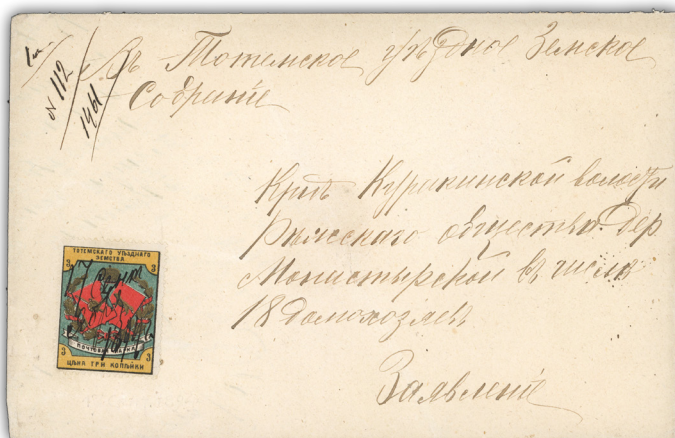 № 112
1961
Въ Тотемское уѣздное Земское
Собрание
Крит Курикинской волости
Ряжскаго общества Дер
Монистырской въ числѣ
18 домохозяевъ
Заявление
ТОТЕМСКАГО УѢЗДНАГО
ЗЕМСТВА
3 3
ПОЧТОВАЯ МАРКА
3 3
ЦѢНА ТРИ КОПѢЙКИ